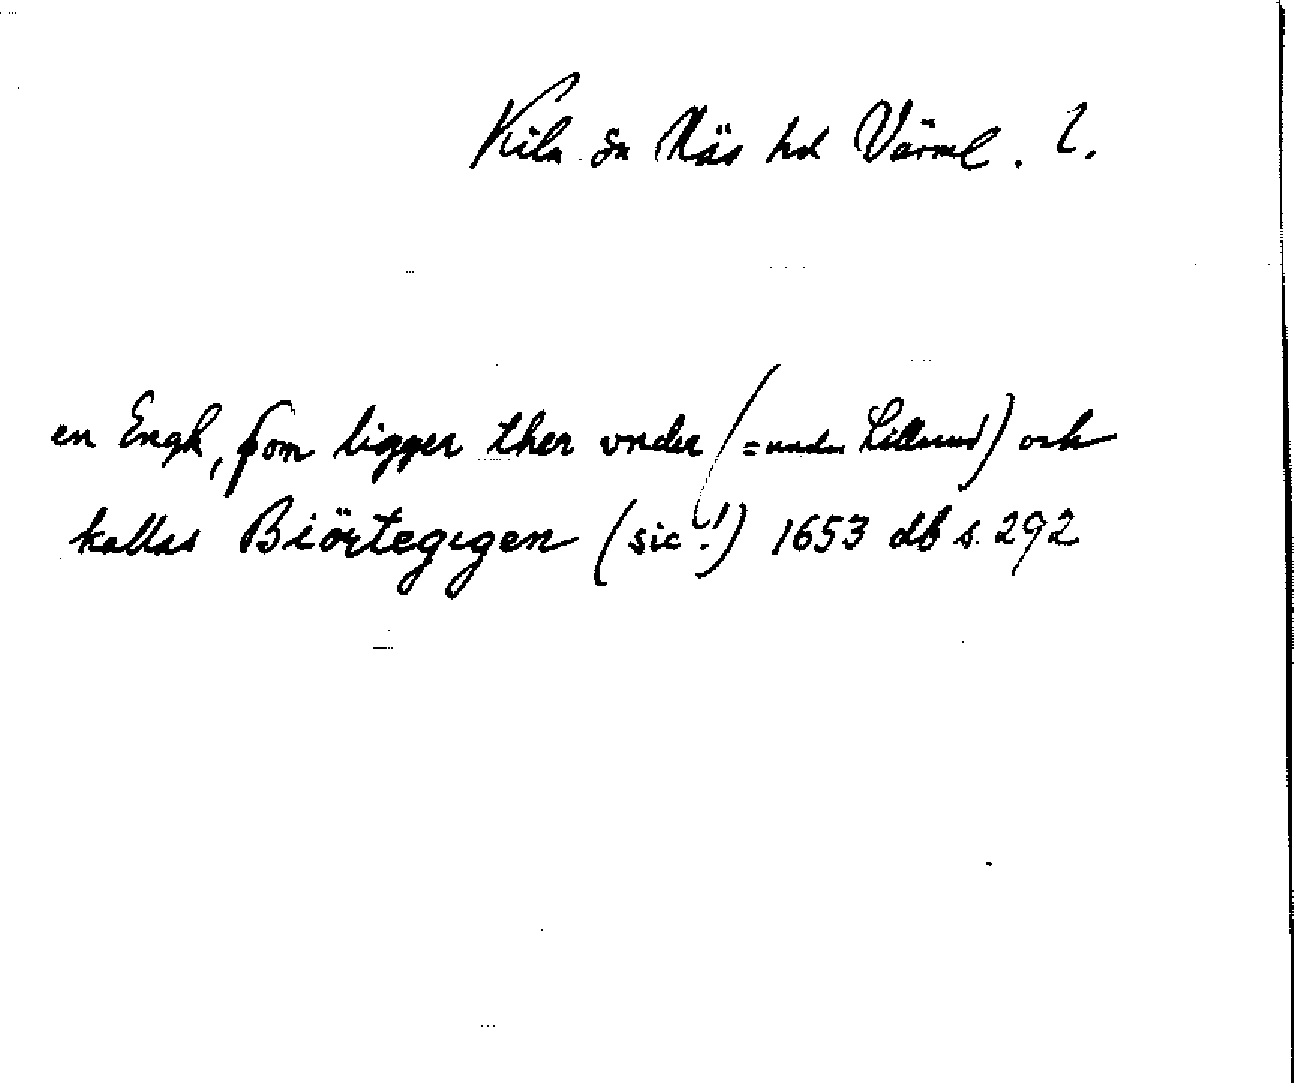 Kila sn Näs hd Värml. l.
en Engh, som ligger ther vnder (= under Lillerud) och
kallas Biörtegigen (sic!) 1653 db s. 292